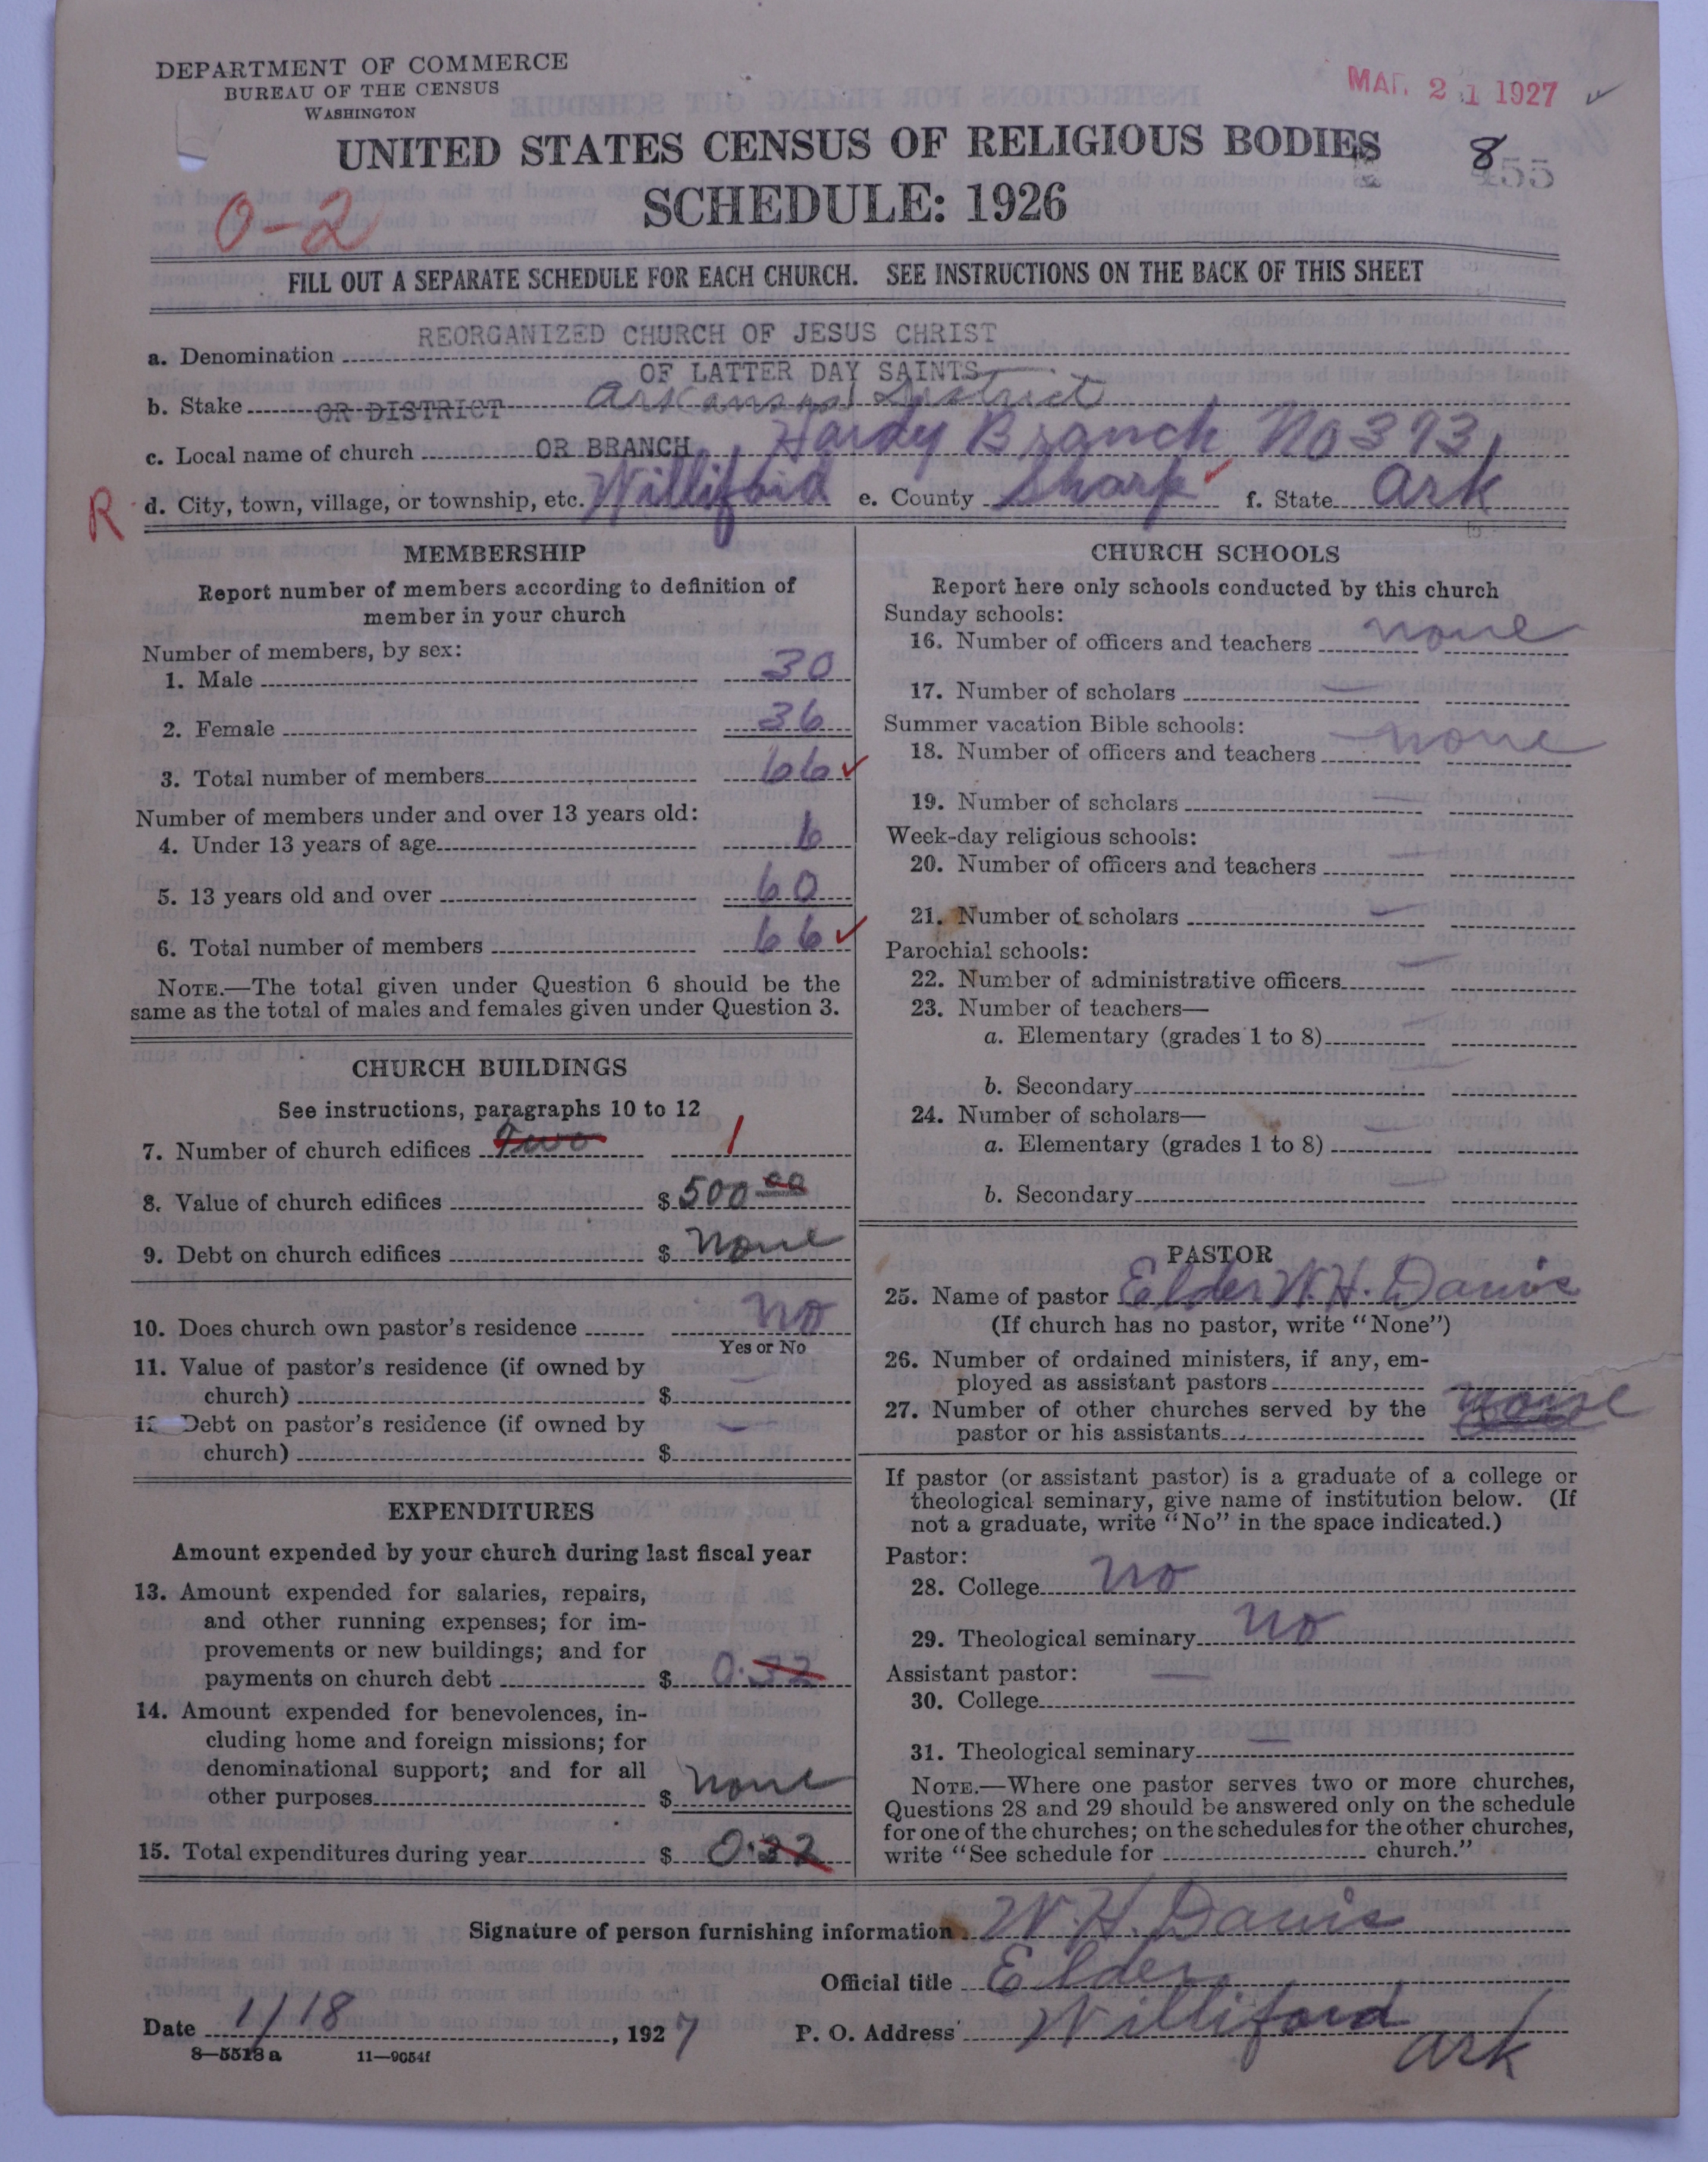 DEPARTMENT OF COMMERCE
BUREAU OF THE CENSUS
WASHINGTON
MAR. 21 1927
UNITED STATES CENSUS OF RELIGIOUS BODIES
SCHEDULE: 1926
8
455
0-2
FILL OUT A SEPARATE SCHEDULE FOR EACH CHURCH. SEE INSTRUCTIONS ON THE BACK OF THIS SHEET
REORGANIZED CHURCH OF JESUS CHRIST
a. Denomination
OF LATTER DAY SAINTS
b. Stake OR DISTRICT Arkansas District
c. Local name of church OR BRANCH Hardy Branch No 393,
R d. City, town, village, or township, etc. Williford e. County Sharp f. State Ark
MEMBERSHIP
Report number of members according to definition of
member in your church
Number of members, by sex:
1. Male 30
2. Female 36
3. Total number of members 66
Number of members under and over 13 years old:
4. Under 13 years of age 6
5. 13 years old and over 60
6. Total number of members 66
NOTE.—The total given under Question 6 should be the
same as the total of males and females given under Question 3.
CHURCH BUILDINGS
See instructions, paragraphs 10 to 12
7. Number of church edifices two 1
8. Value of church edifices $ 500 00
9. Debt on church edifices $ None
10. Does church own pastor's residence No
Yes or No
11. Value of pastor's residence (if owned by
church) $
12. Debt on pastor's residence (if owned by
church) $
EXPENDITURES
Amount expended by your church during last fiscal year
13. Amount expended for salaries, repairs,
and other running expenses; for im-
provements or new buildings; and for
payments on church debt $ 0.32
14. Amount expended for benevolences, in-
cluding home and foreign missions; for
denominational support; and for all
other purposes $ None
15. Total expenditures during year $ 0.32
CHURCH SCHOOLS
Report here only schools conducted by this church
Sunday schools:
16. Number of officers and teachers none
17. Number of scholars
Summer vacation Bible schools:
18. Number of officers and teachers none
19. Number of scholars
Week-day religious schools:
20. Number of officers and teachers
21. Number of scholars
Parochial schools:
22. Number of administrative officers
23. Number of teachers—
a. Elementary (grades 1 to 8)
b. Secondary
24. Number of scholars—
a. Elementary (grades 1 to 8)
b. Secondary
PASTOR
25. Name of pastor Elder W. H. Davis
(If church has no pastor, write "None")
26. Number of ordained ministers, if any, em-
ployed as assistant pastors
27. Number of other churches served by the
pastor or his assistants None
If pastor (or assistant pastor) is a graduate of a college or
theological seminary, give name of institution below. (If
not a graduate, write "No" in the space indicated.)
Pastor:
28. College No
29. Theological seminary No
Assistant pastor:
30. College
31. Theological seminary
NOTE.—Where one pastor serves two or more churches,
Questions 28 and 29 should be answered only on the schedule
for one of the churches; on the schedules for the other churches,
write "See schedule for church."
Signature of person furnishing information W. H. Davis
Official title Elder
Date 1/18, 1927 P. O. Address Williford
Ark
8—5518a 11—9054f